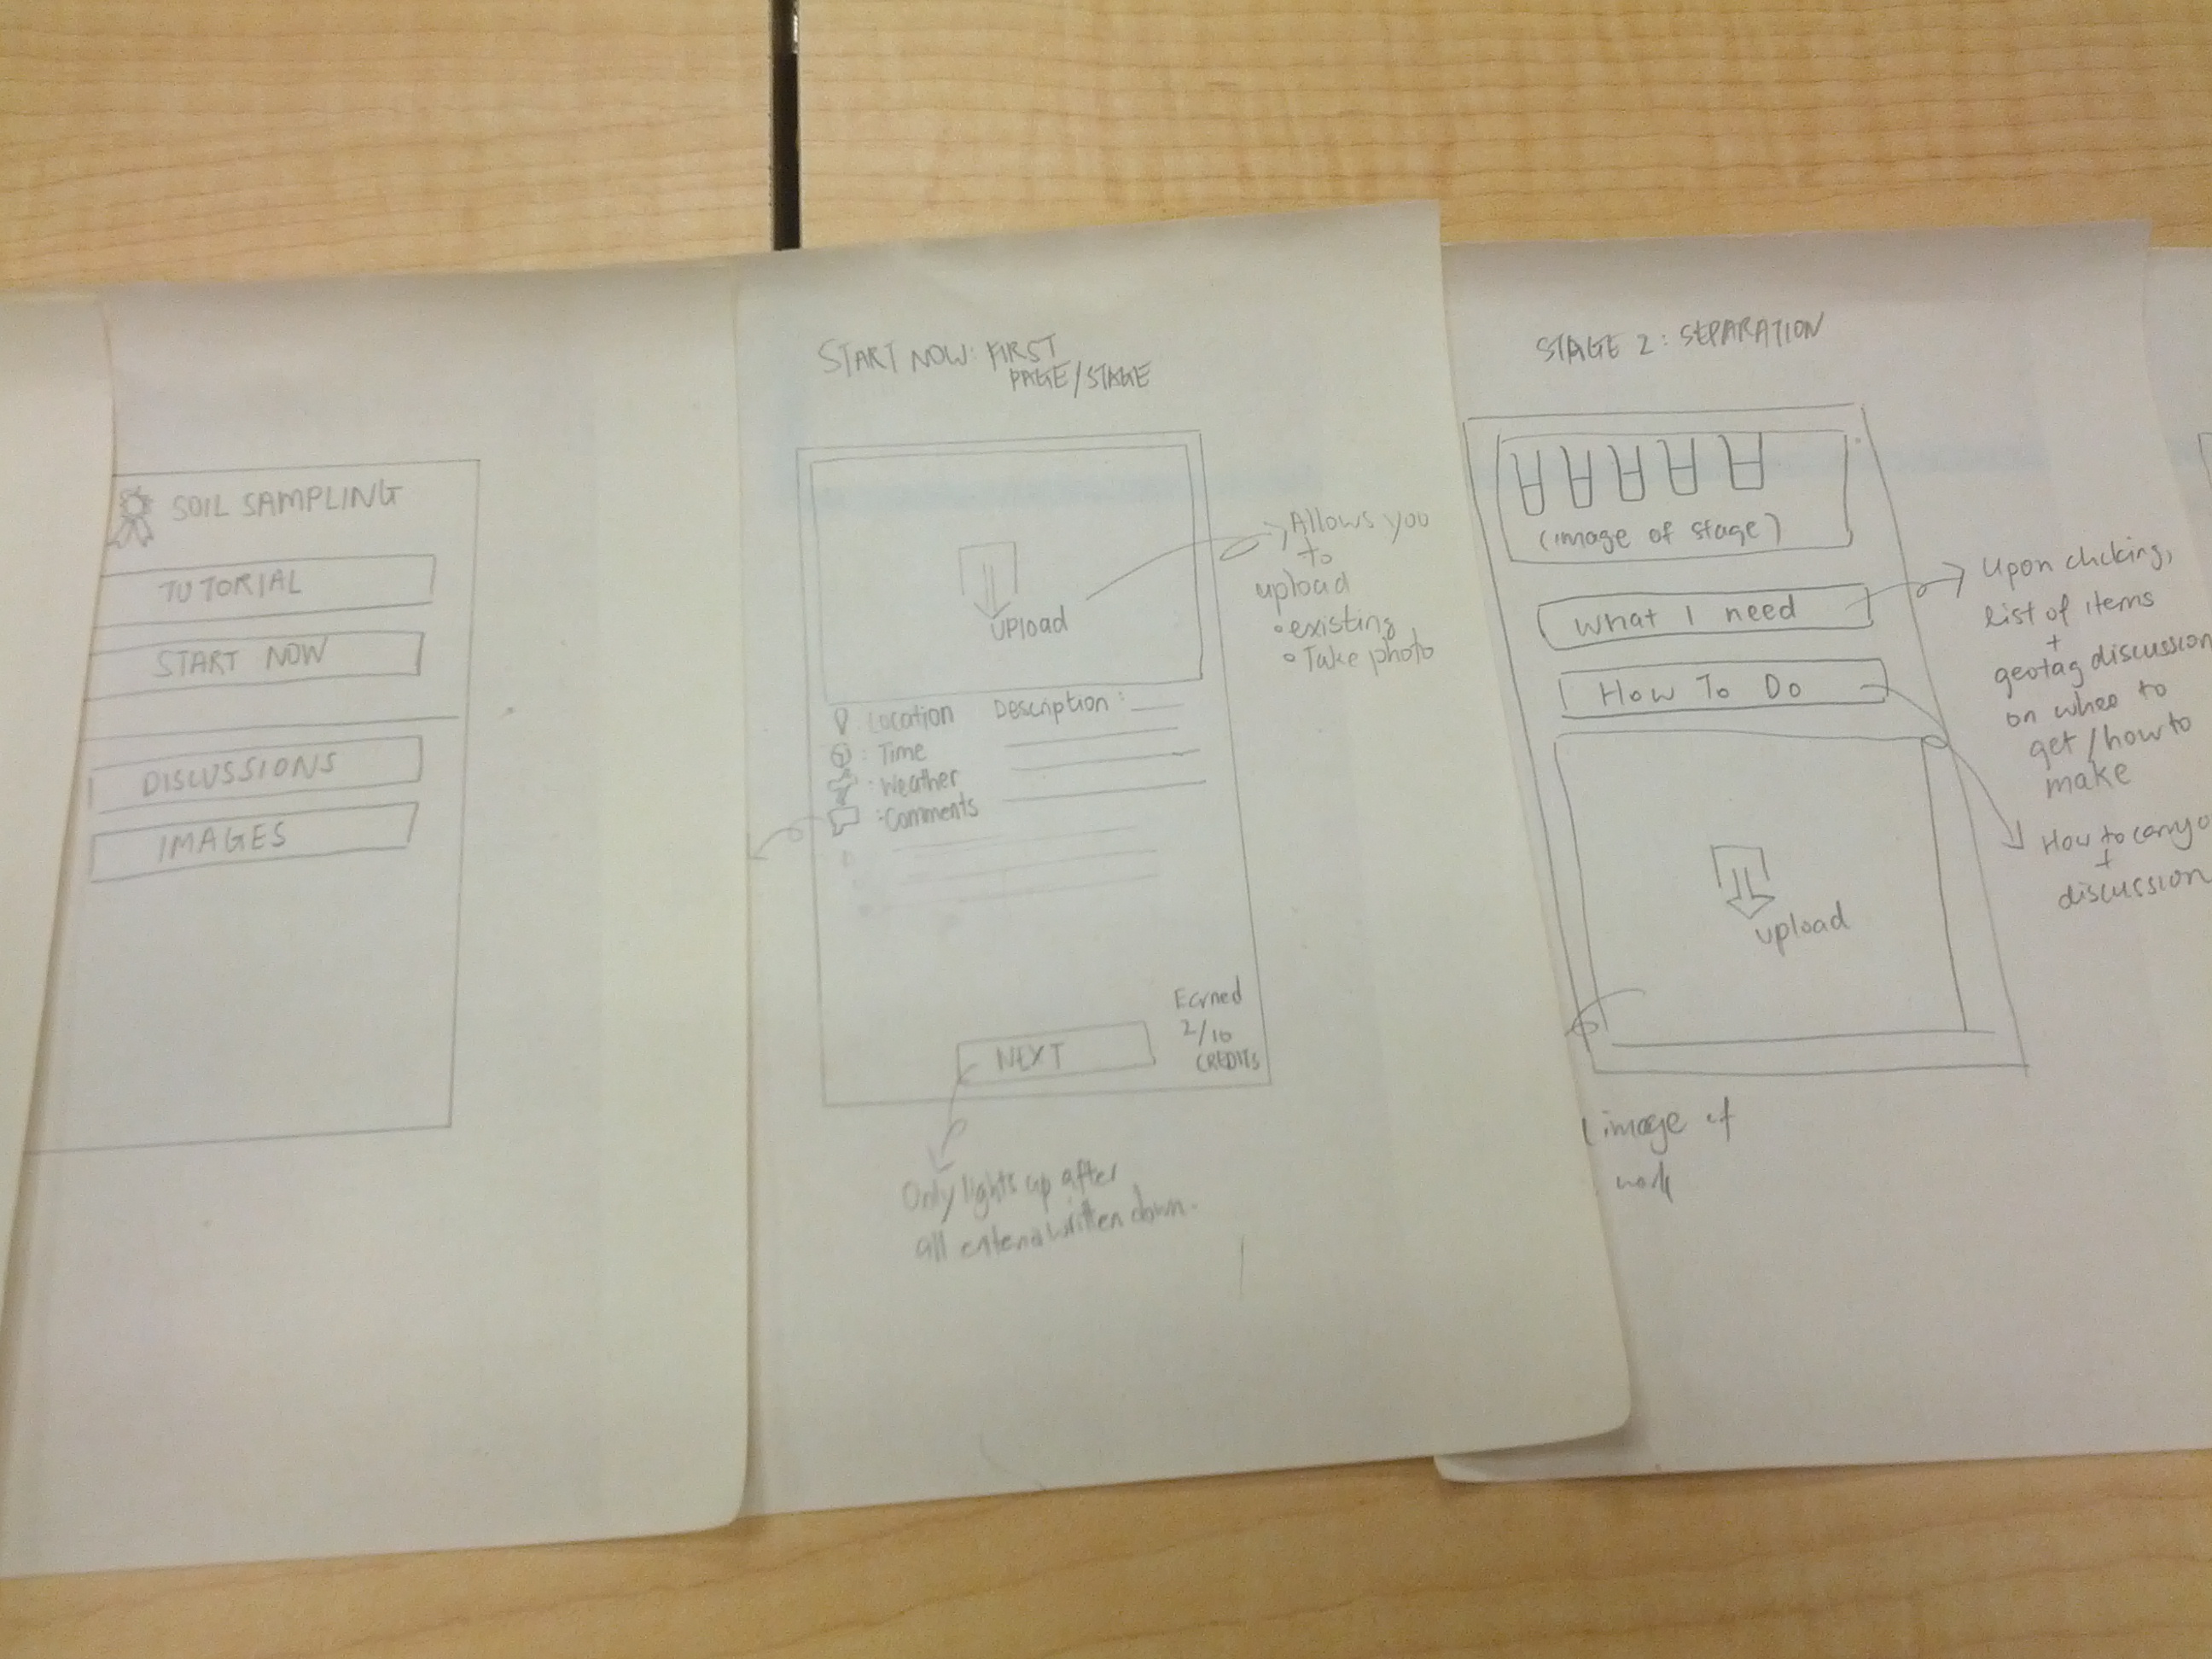 SOIL SAMPLING
TUTORIAL
START NOW
DISCUSSIONS
IMAGES
START NOW: FIRST
PAGE/STAGE
upload
Allows you
to
upload
• existing
• Take photo
Location
: Time
: Weather
: Comments
Description :
NEXT
Earned
2/10
CREDITS
Only lights up after
all written down.
STAGE 2: SEPARATION
(image of stage)
What I need
How To Do
upload
Upon clicking,
list of items
+
geotag discussion
on
get / how to
make
How to carry o
+
discussion
image of
work